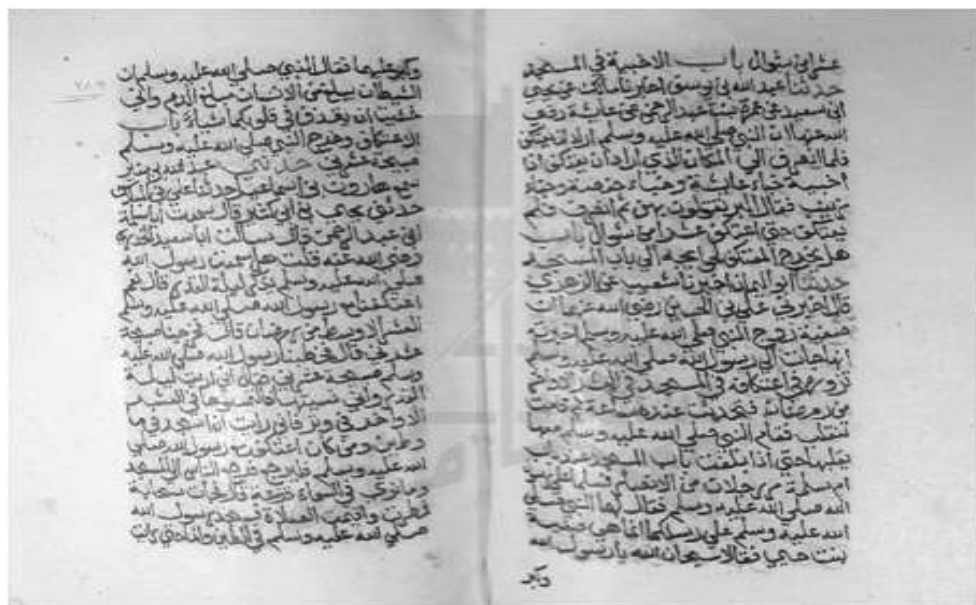 عشرا من شوال باب الاخبية في المسجد
حدثنا عبد الله بن يوسف اخبرنا مالك عن يحيى
ابن سعيد عن عمرة بنت عبد الرحمن عن عائشة رضي
الله عنها ان النبي صلى الله عليه وسلم اراد ان يعتكف
فلما انصرف الى المكان الذي اراد ان يعتكف اذا
اخبية خباء عائشة وخباء حفصة وخباء
زينب فقال البر تقولون بهن ثم انصرف فلم
يعتكف حتى اعتكف عشرا من شوال باب
هل يخرج المعتكف لحوايجه الى باب المسجد
حدثنا ابو اليمان اخبرنا شعيب عن الزهري
قال اخبرني علي بن الحسين رضي الله عنهما ان
صفية زوج النبي صلى الله عليه وسلم اخبرته
انها جاءت الى رسول الله صلى الله عليه وسلم
تزوره في اعتكافه في المسجد في العشر الاواخر
من رمضان فتحدثت عنده ساعة ثم قامت
تنقلب فقام النبي صلى الله عليه وسلم معها
يقلبها حتى اذا بلغت باب المسجد عند باب
ام سلمة مر رجلان من الانصار فسلما على رسول
الله صلى الله عليه وسلم فقال لهما النبي صلى
الله عليه وسلم على رسلكما انما هي صفية
بنت حيي فقالا سبحان الله يا رسول الله
وكبر
وكبر عليهما فقال النبي صلى الله عليه وسلم ان
الشيطان يبلغ من الانسان مبلغ الدم واني
خشيت ان يقذف في قلوبكما شيئا باب
الاعتكاف وخرج النبي صلى الله عليه وسلم
صبيحة عشرين حدثني عبد الله بن منير
سمع هارون بن اسماعيل حدثنا علي بن المبارك
حدثني يحيى بن ابي كثير قال سمعت ابا سلمة
ابن عبد الرحمن قال سالت ابا سعيد الخدري
رضي الله عنه قلت هل سمعت رسول الله
صلى الله عليه وسلم يذكر ليلة القدر قال نعم
اعتكفنا مع رسول الله صلى الله عليه وسلم
العشر الاوسط من رمضان قال فخرجنا صبيحة
عشرين قال فخطبنا رسول الله صلى الله عليه
وسلم صبيحة عشرين فقال اني اريت ليلة
القدر واني نسيتها فالتمسوها في العشر
الاواخر في وتر فاني رايت ان اسجد في ما
وطين ومن كان اعتكف مع رسول الله صلى
الله عليه وسلم فليرجع فرجع الناس الى المسجد
وما نرى في السماء قزعة قال فجات سحابة
فمطرت واقيمت الصلاة فسجد رسول الله
صلى الله عليه وسلم في الطين والماء حتى رايت